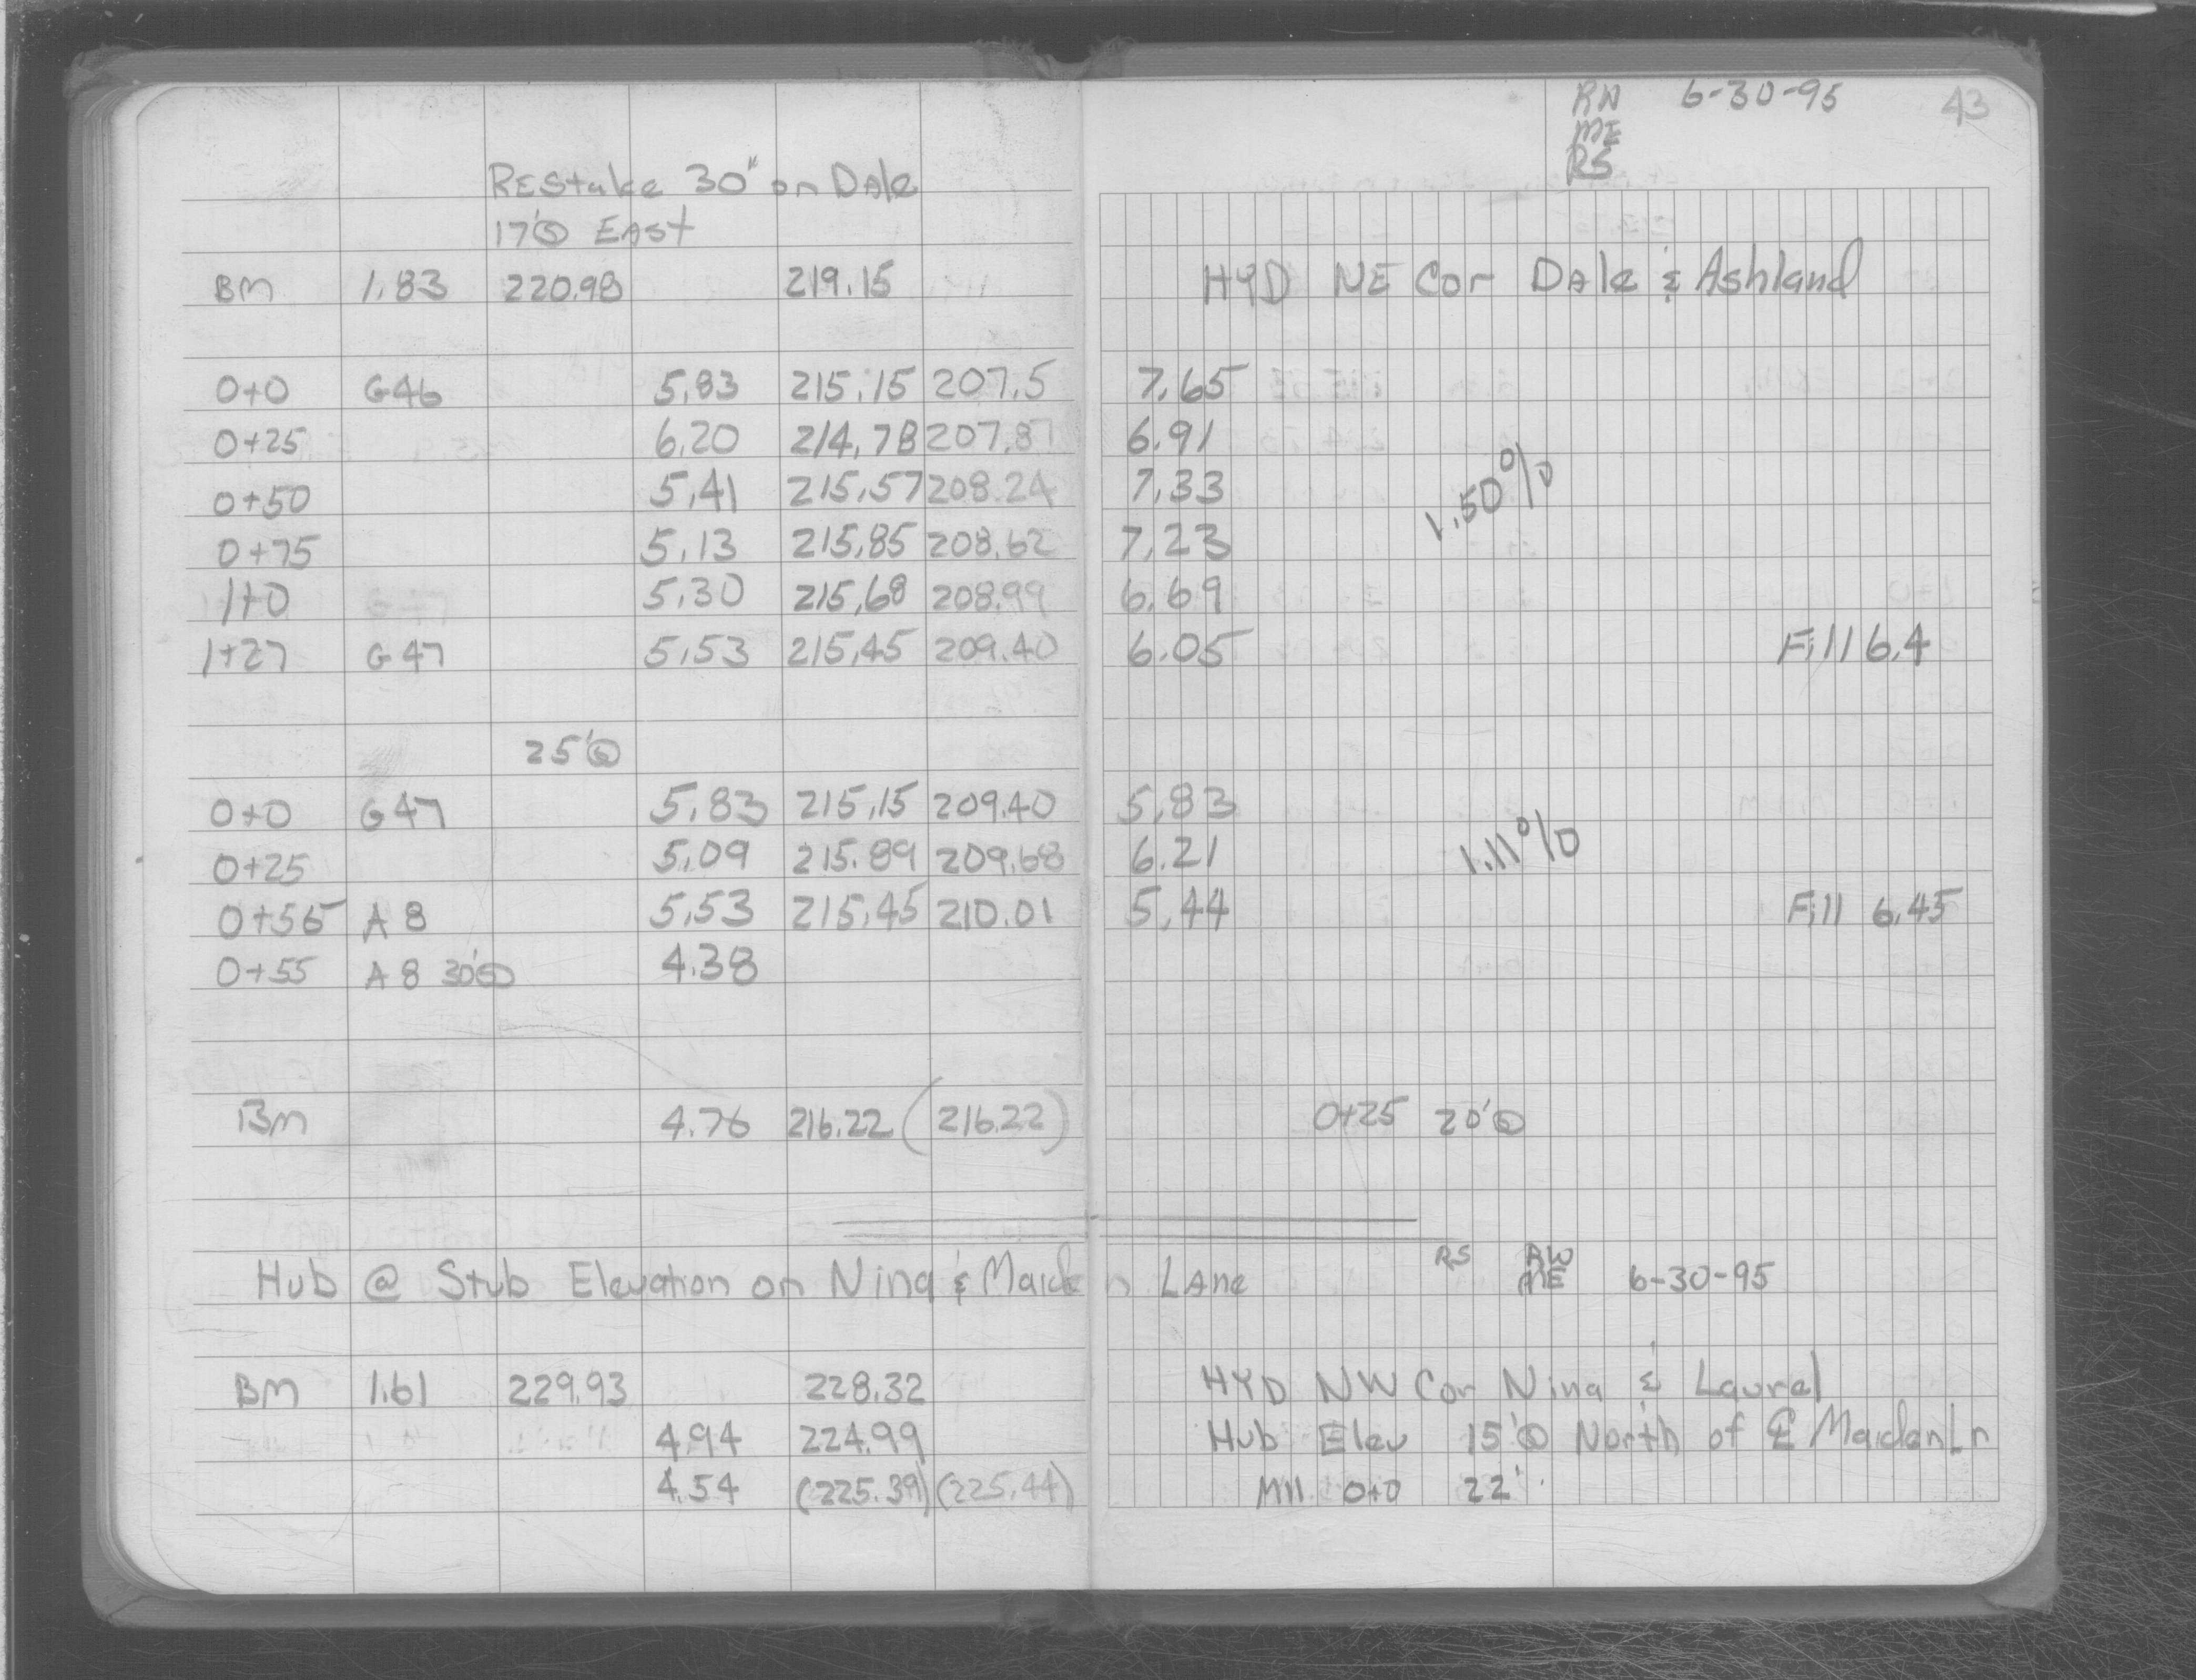 RW 6-30-95 43
ME
RS
REStake 30" on DAle
17'Ⓢ EAst
BM 1.83 220.98 219.15 HYD NE Cor DAle & Ashland
0+0 G46 5.83 215.15 207.5 7.65
0+25 6.20 214.78 207.87 6.91
0+50 5.41 215.57 208.24 7.33
1.50%
0+75 5.13 215.85 208.62 7.23
1+0 5.30 215.68 208.99 6.69
1+27 G47 5.53 215.45 209.40 6.05 Fill 6.4
25'Ⓢ
0+0 G47 5.83 215.15 209.40 5.83
0+25 5.09 215.89 209.68 6.21 1.11%
0+55 A8 5.53 215.45 210.01 5.44 Fill 6.45
0+55 A8 30'Ⓢ 4.38
BM 4.76 216.22 (216.22) 0+25 20'Ⓢ
Hub @ Stub Elevation on Nina & Maiden LAne RS RW ME 6-30-95
BM 1.61 229.93 228.32 HYD NW Cor Nina & Laurel
4.94 224.99 Hub Elev 15'Ⓢ North of ℄ Maiden Ln
4.54 (225.39) (225.44) M11 0+0 22'